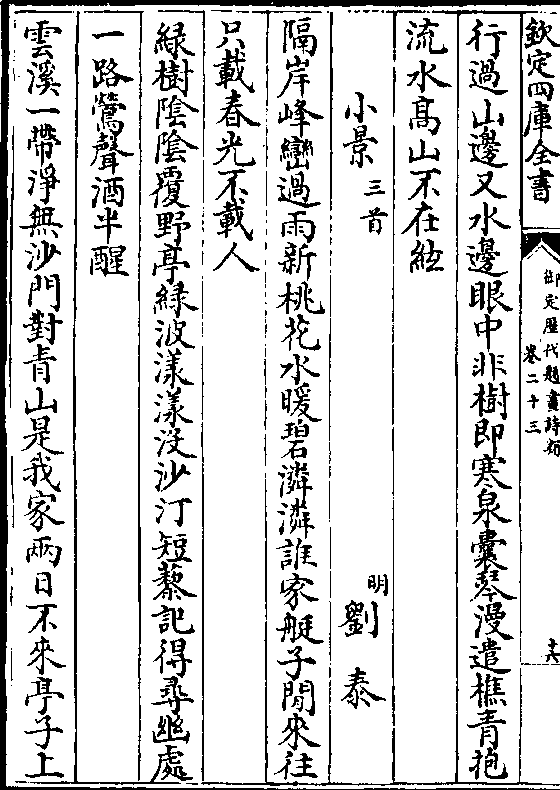 欽定四庫全書
御定歷代題畫詩類
卷二十三
十六
行過山邊又水邊眼中非樹即寒泉囊琴漫遣樵青抱
流水髙山不在絃
小景三首
明劉泰
隔岸峰巒過雨新桃花水暖碧潾潾誰家艇子閒來往
只載春光不載人
緑樹陰陰覆野亭緑波漾漾没沙汀短藜記得尋幽處
一路鶯聲酒半醒
雲溪一帶淨無沙門對青山是我家兩日不來亭子上